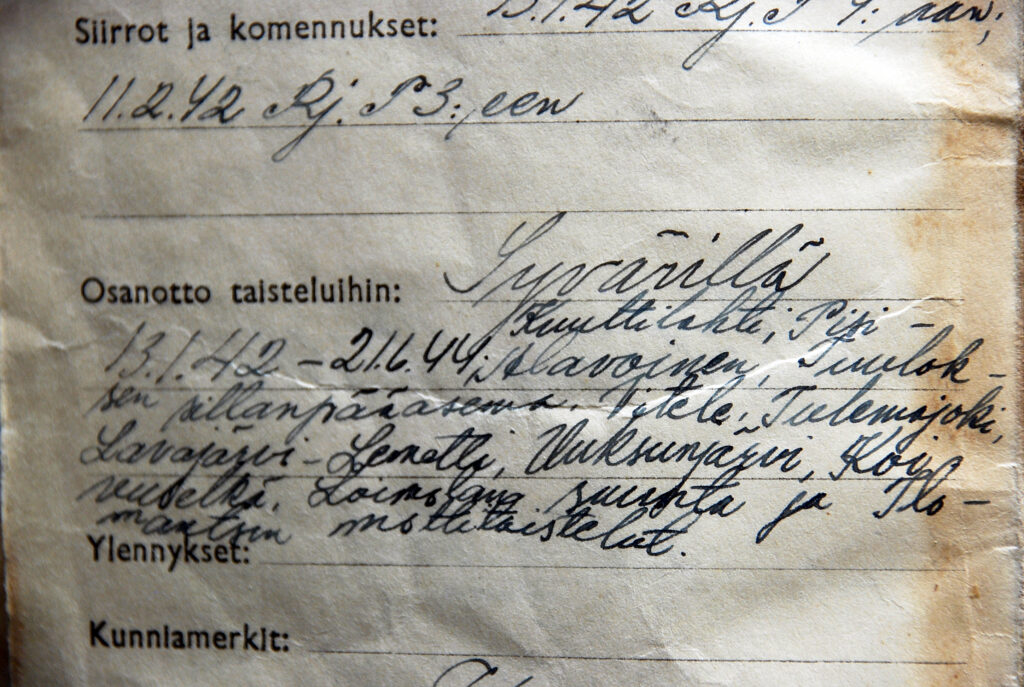 Siirrot ja komennukset: 13.1.42 Rj. P 4: ään,
11.2.42 Rj. P 3:, een
Osanotto taisteluihin: Syvärillä
Kuuttilahti, Pisi-
13.1.42 - 21.6.44; Alavojnen, Tuulok-
sen sillanpääasema. Vitele, Tulemajoki,
Lavajärvi-Lemetti, Uuksunjärvi, Koi
vuselkä, Loimolang suunta ja Ilo-
mantsin mottitaistelut.
Ylennykset:
Kunniamerkit: